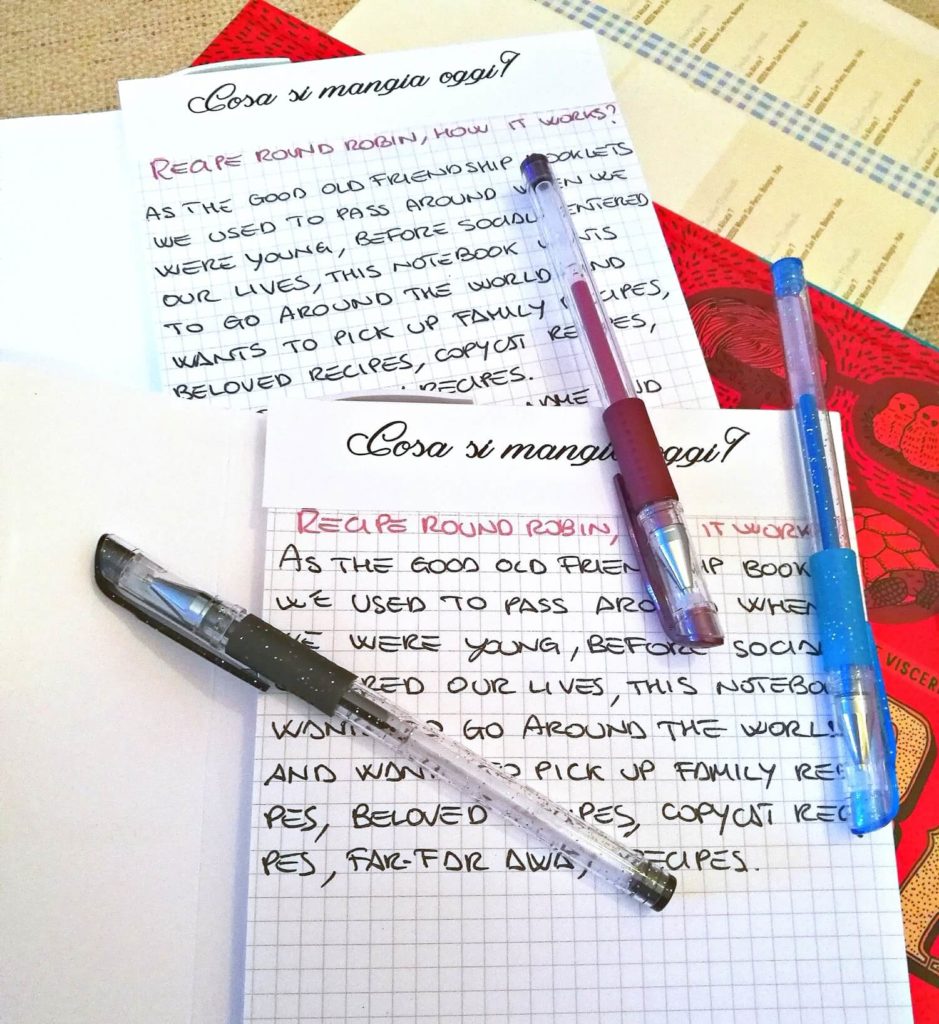 Cosa si mangia oggi?
RECIPE ROUND ROBIN, HOW IT WORKS?
AS THE GOOD OLD FRIENDSHIP BOOKLETS
WE USED TO PASS AROUND WHEN WE
WERE YOUNG, BEFORE SOCIAL ENTERED
OUR LIVES, THIS NOTEBOOK WANTS
TO GO AROUND THE WORLD AND
WANTS TO PICK UP FAMILY RECIPES,
BELOVED RECIPES, COPYCAT RECIPES,
RECIPES.
NAME AND
Cosa si mangia oggi?
RECIPE ROUND ROBIN, IT WORK
AS THE GOOD OLD FRIENDSHIP BOOK
WE USED TO PASS AROUND WHEN
WE WERE YOUNG, BEFORE SOCIAL
ENTERED OUR LIVES, THIS NOTEBOOK
WANTS TO GO AROUND THE WORLD
AND WANTS TO PICK UP FAMILY RECI
PES, BELOVED RECIPES, COPYCAT RECI
PES, FAR-FAR AWAY RECIPES.
VISCER